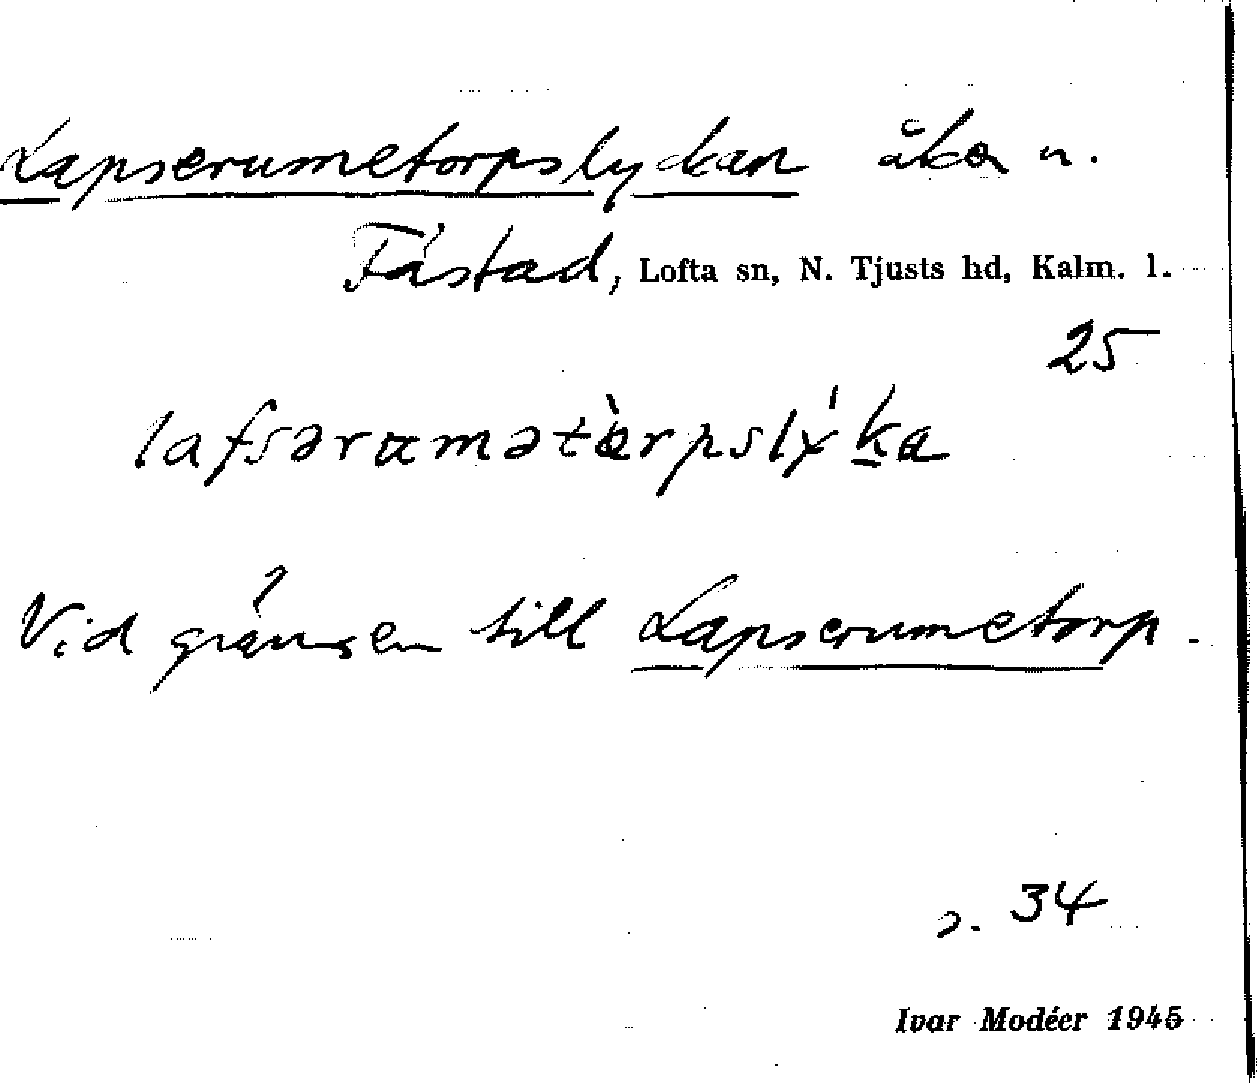 Lapserumetorpslyckan åker n.
Fästad, Lofta sn, N. Tjusts hd, Kalm. l.
25
lafsərumətòrpslýka
Vid gränsen till Lapserumetorp.
s. 34
Ivar Modéer 1945